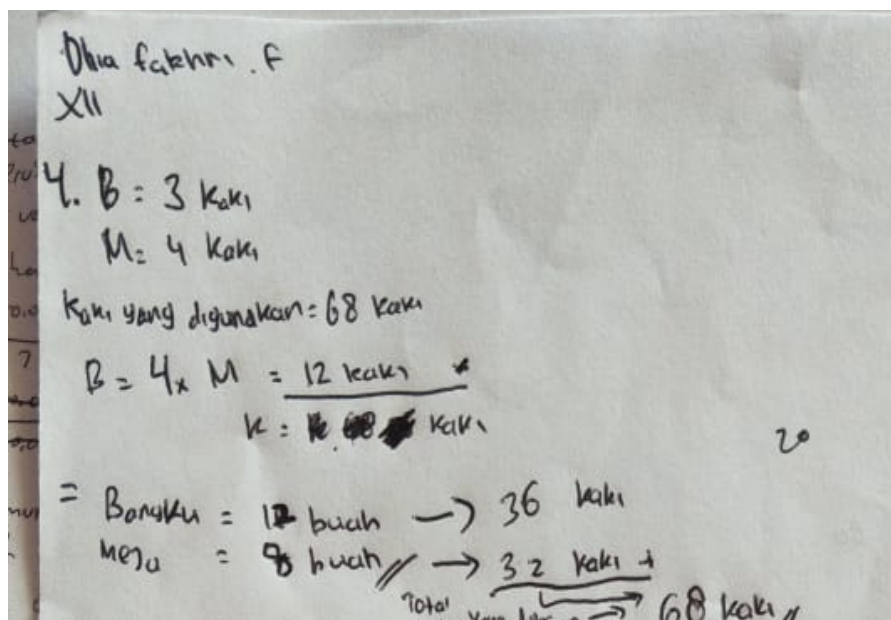 Dhia fakhri. F
XII
4. B = 3 kaki
M = 4 kaki
Kaki yang digunakan = 68 kaki
B = 4 x M = 12 kaki
k = kaki
20
= Bangku = 12 buah → 36 kaki
Meja = 8 buah // → 32 kaki +
Total → 68 kaki //